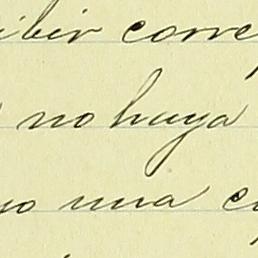 ibir corre
no haya
yo una c